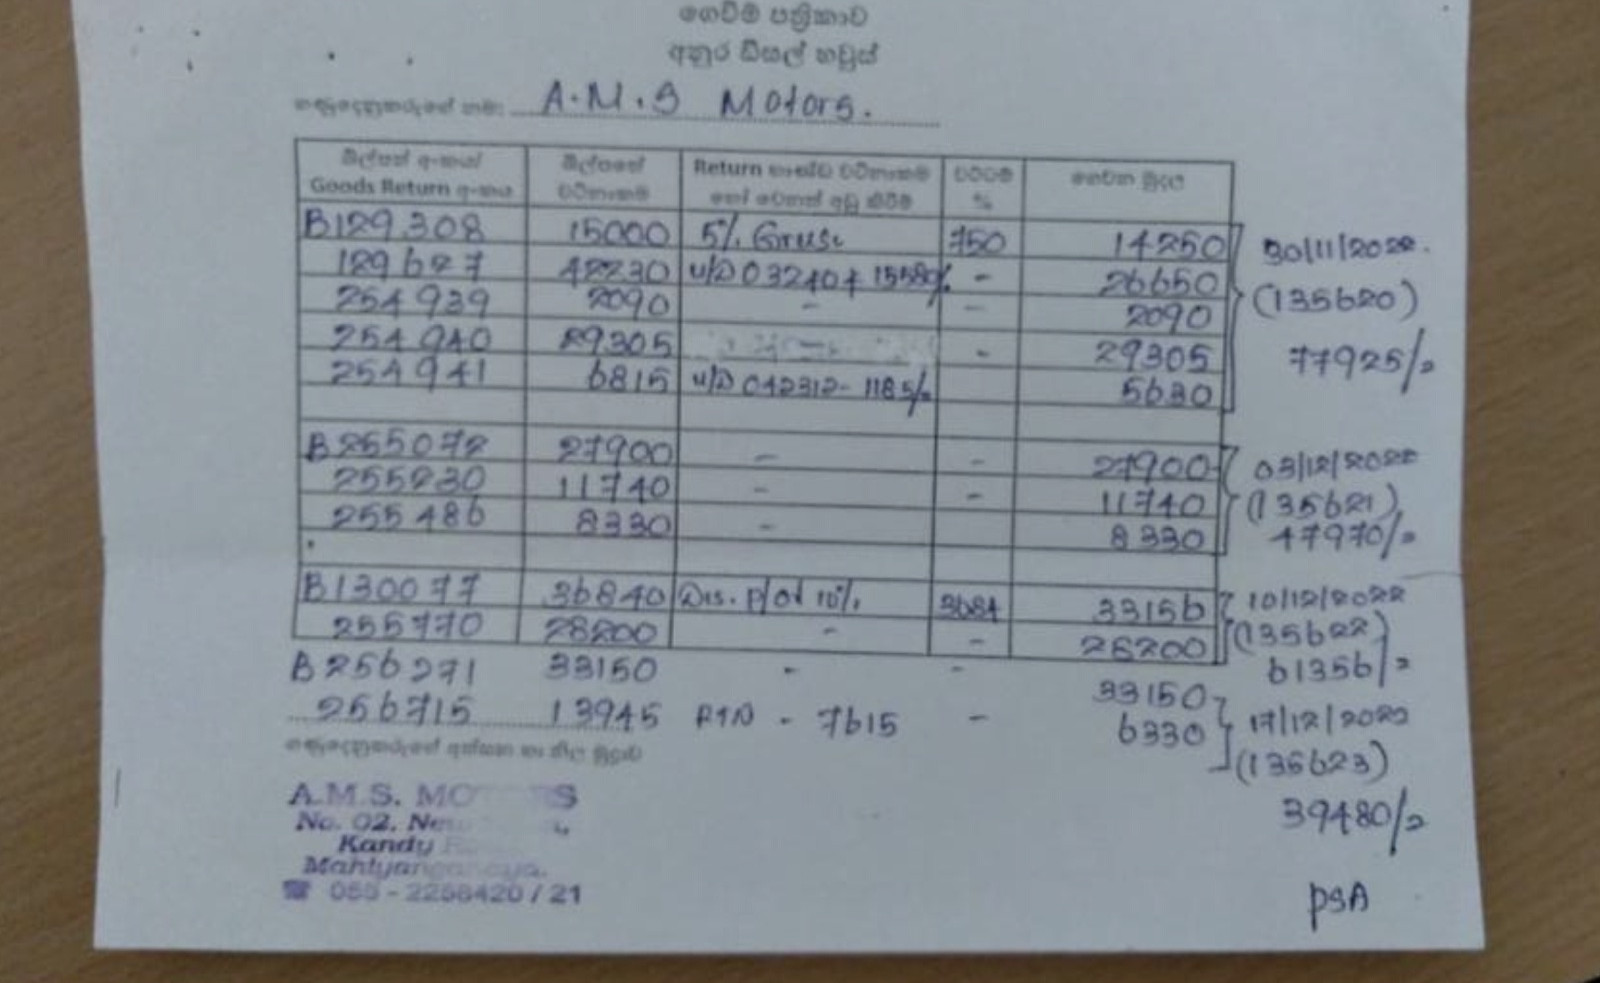 ගෙවීම් පත්‍රිකාව
අනුර ඩීසල් හවුස්
ගණුදෙනුකරුගේ නම: A.M.S Motors.
බිල්පත් අංකය/ බිල්පතේ Return භාණ්ඩ වටිනාකම වට්ටම් ගෙවන මුදල
Goods Return අංකය වටිනාකම හෝ වෙනත් අඩු කිරීම් %
B129308 15000 5% 750 14250 30/11/2022.
129627 42230 U/D 03240 + 15580/. - 26650 (135620)
254939 2090 - - 2090
254940 29305 - 29305 77925/=
254941 6815 U/D 042312 - 1185/= 5630
B255072 27900 - - 27900 03/12/2022
255230 11740 - - 11740 (135621)
255486 8330 - 8330 47970/=
B130077 36840 Dis. 10% 3684 33156 10/12/2022
255770 28200 - - 28200 (135622)
61356/=
B256271 33150 - - 33150
256715 13945 RTN - 7615 - 6330 17/12/2022
ගණුදෙනුකරුගේ අත්සන හා නිල මුද්‍රාව (135623)
A.M.S. MOTORS 39480/=
No. 02, New
Kandy
Mahiyanganaya.
☎ 055 - 2258420 / 21
PSA